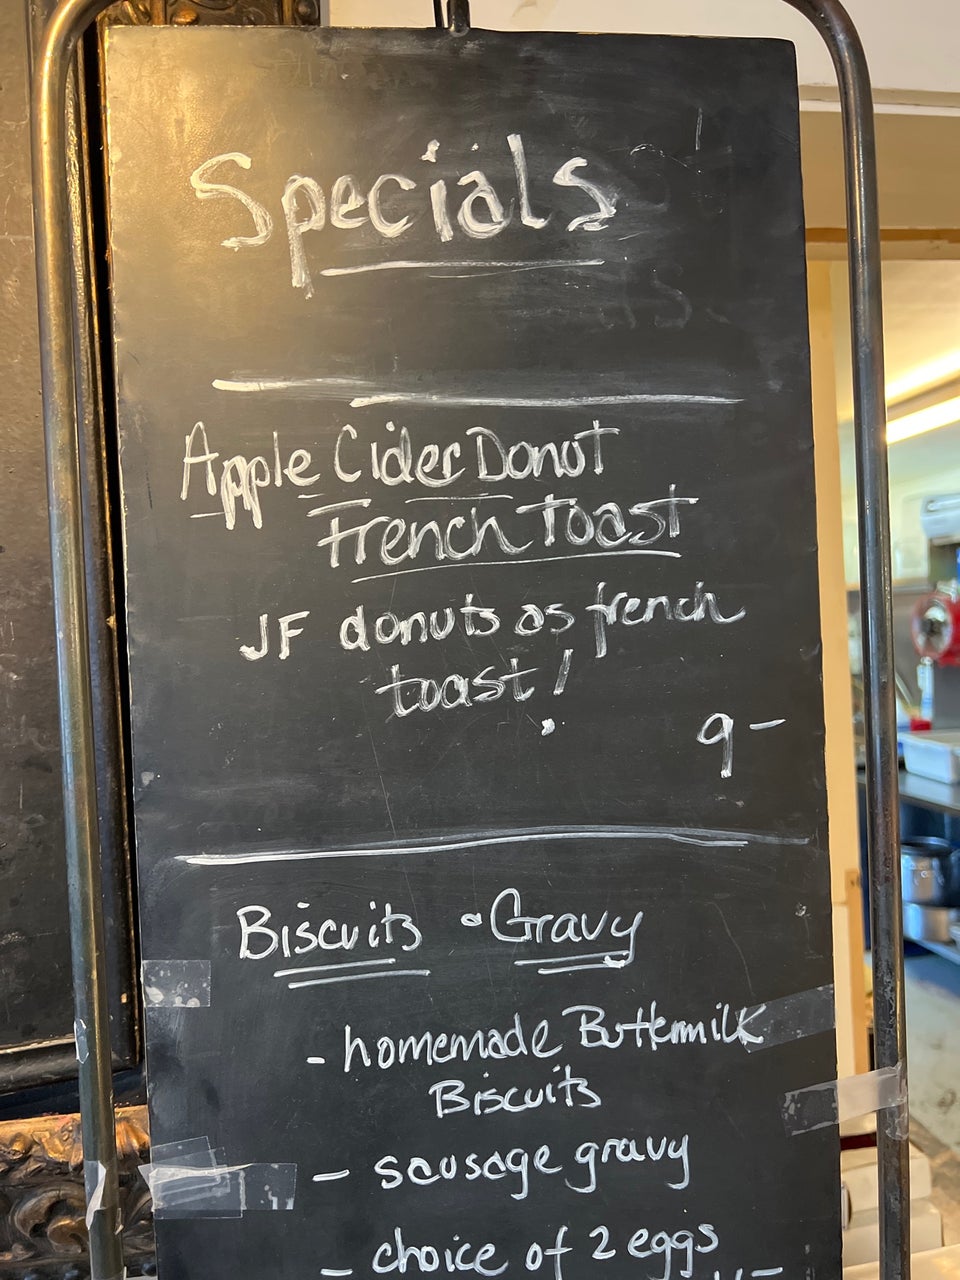 Specials
Apple Cider Donut
French Toast
JF donuts as french
toast!
9-
Biscuits • Gravy
- homemade Buttermilk
Biscuits
- sausage gravy
- choice of 2 eggs